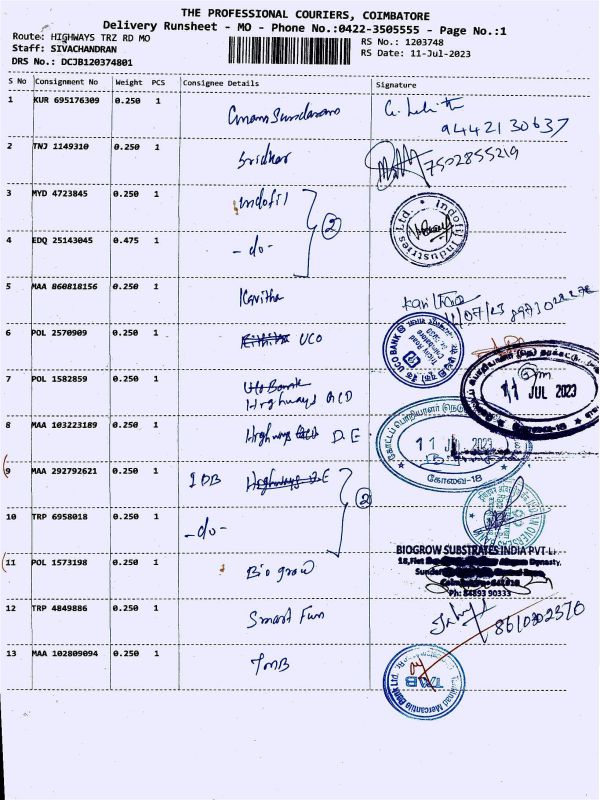 THE PROFESSIONAL COURIERS, COIMBATORE
Delivery Runsheet - MO - Phone No.:0422-3505555 - Page No.:1
Route: HIGHWAYS TRZ RD MO
RS No.: 1203748
Staff: SIVACHANDRAN
RS Date: 11-Jul-2023
DRS No.: DCJB120374801
S No Consignment No Weight PCS Consignee Details Signature
1 KUR 695176309 0.250 1
9442130637
2 TNJ 1149310 0.250 1 Sridhar 7502855219
3 MYD 4723845 0.250 1 Indofil
Indofil Industries Ltd.
4 EDQ 25143045 0.475 1 -do-
2
5 MAA 860818156 0.250 1 Kavitha
6 POL 2570909 0.250 1 UCO
UCO BANK
7 POL 1582859 0.250 1 UCO Bank
Highways QCD
11 JUL 2023
8 MAA 103223189 0.250 1 Highways D.E
11 JUL 2023
கோவை-18
9 MAA 292792621 0.250 1 IOB Highways D.E
2
10 TRP 6958018 0.250 1 -do-
BIOGROW SUBSTRATES INDIA PVT L
11 POL 1573198 0.250 1 Biogrow
Ph: 84893 90333
12 TRP 4849886 0.250 1 Smart Fun
8610302370
13 MAA 102809094 0.250 1 TMB
TMB